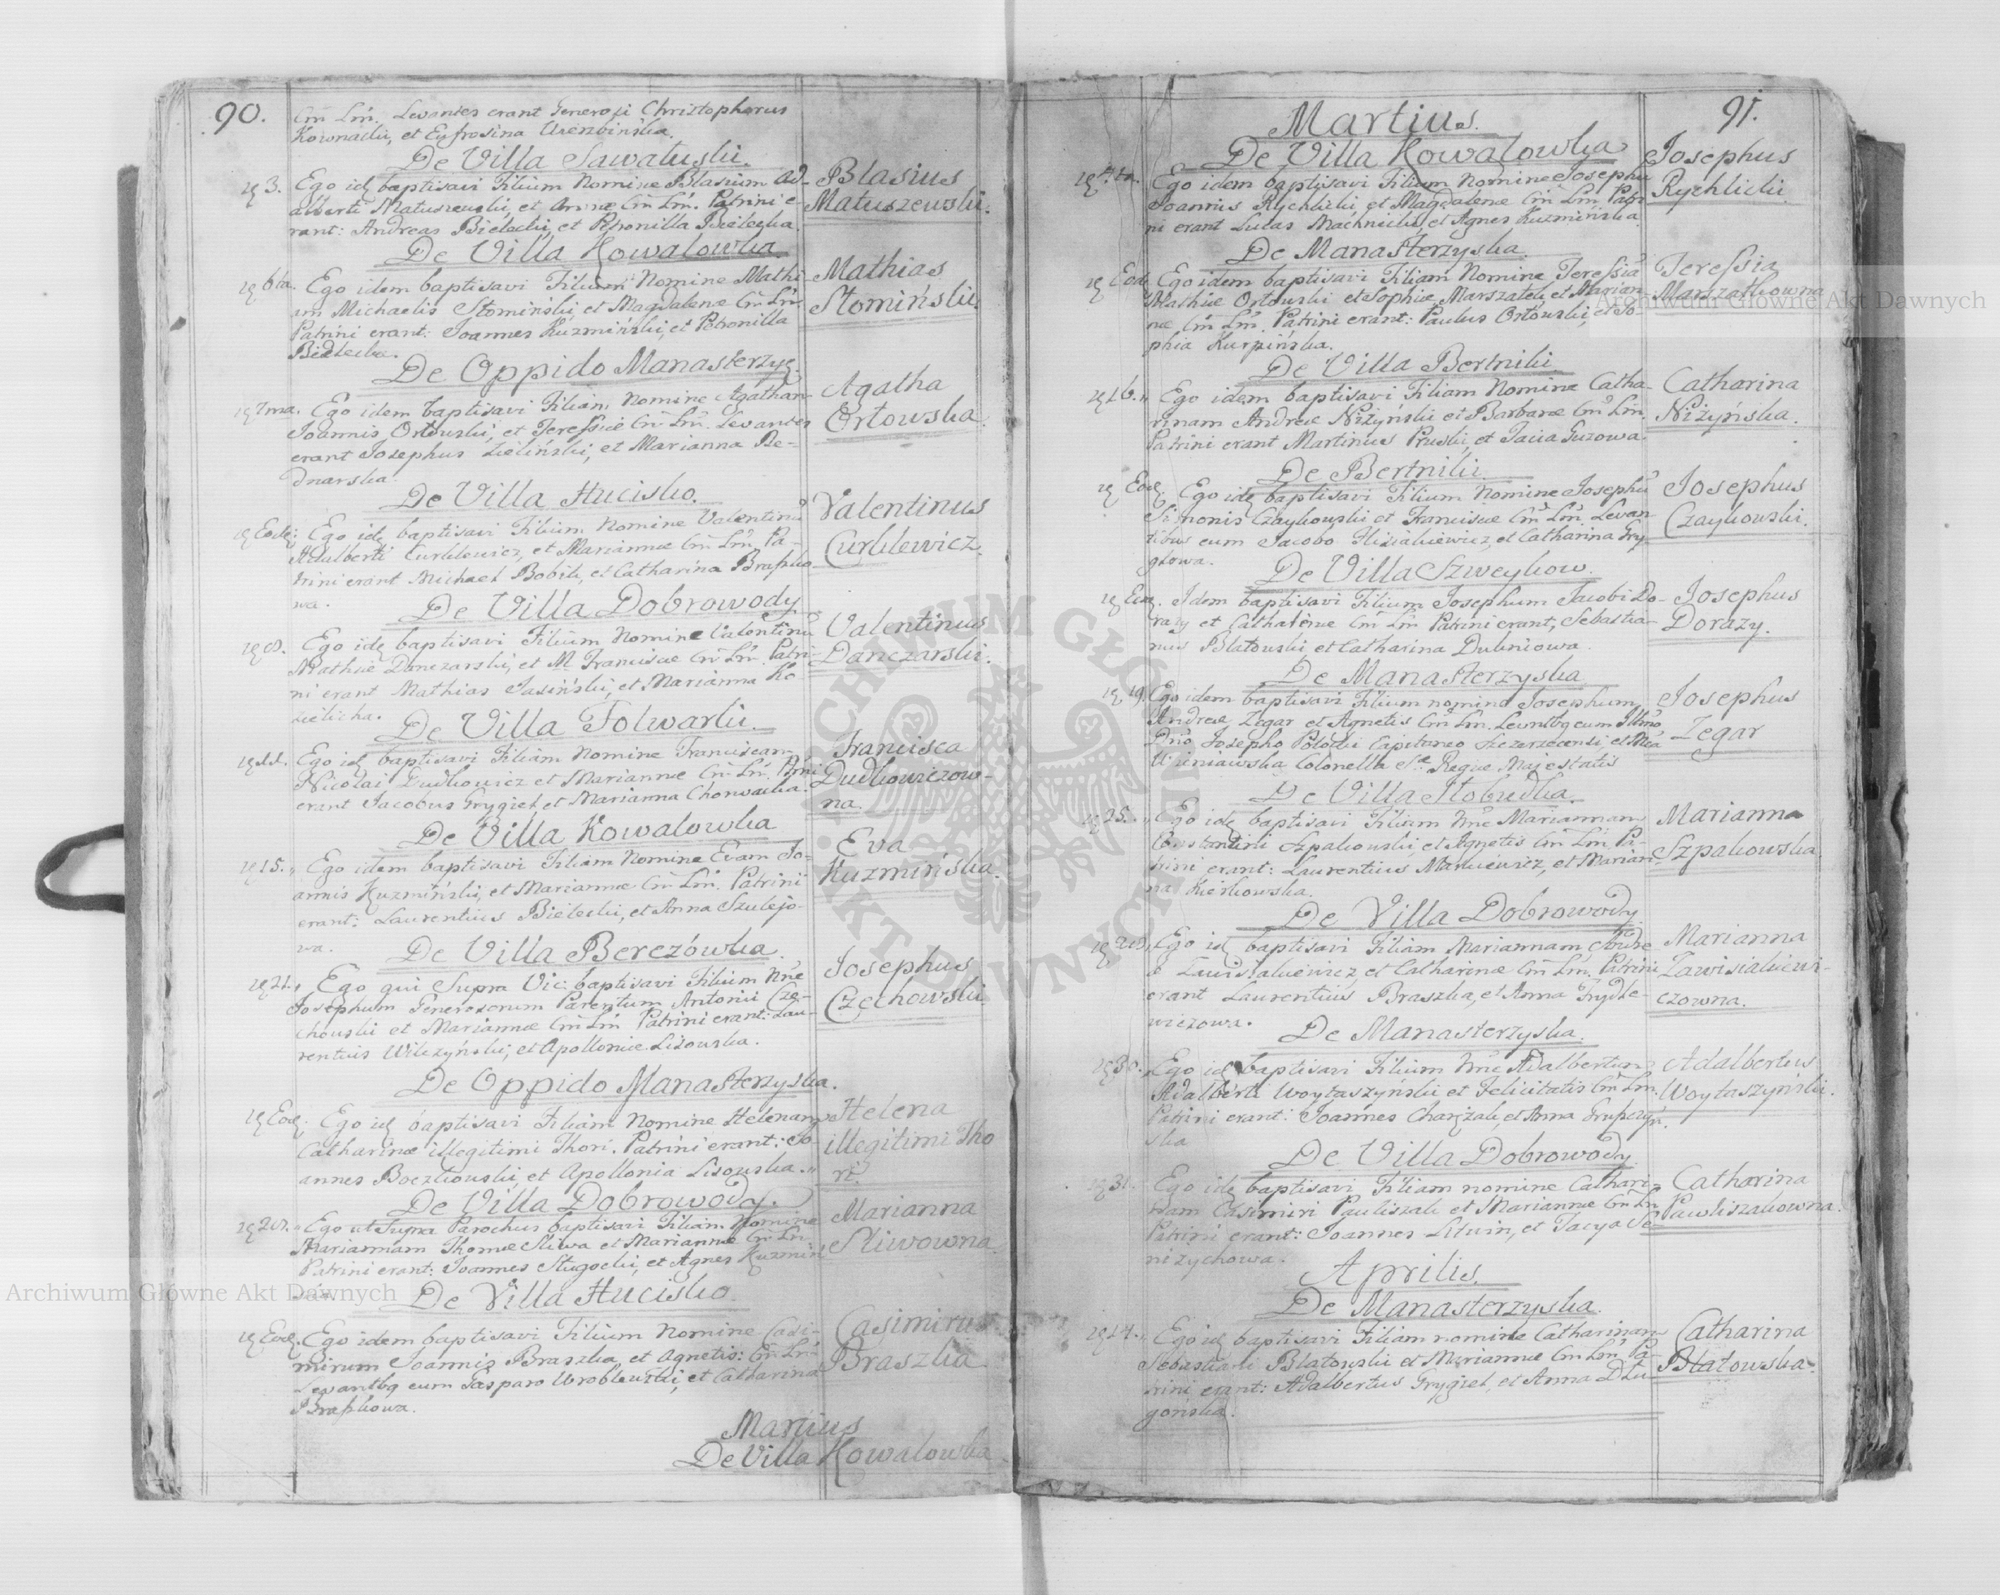 90.
Cm̃ Lm̃. Levantes erant Generosi Christophorus
Kownacki, et Eufrosina
De Villa Sawaluski.
3. Ego idẽ baptisavi Filium Nomine Blasium Ad-
alberti Matuszewski, et Annæ Cm̃ Lm̃. Patrini e-
rant: Andreas Bielecki, et Petronilla Bielecka.
Blasius
Matuszewski.
De Villa Kowalowka.
6ta. Ego idem baptisavi Filium Nomine Mathi-
am Michaelis Słomiński, et Magdalenæ Cm̃ Lm̃.
Patrini erant: Joannes Kuzmiński, et Petronilla
Bielecka.
Mathias
Słomiński.
De Oppido Manasterzys.
7ma. Ego idem baptisavi Filiam Nomine Agatham
Joannis Orłowski, et Teressiæ Cm̃ Lm̃. Levantes
erant Josephus Zieliński, et Marianna Be-
dnarska.
Agatha
Orłowska.
De Villa Hucisko.
Eode: Ego idẽ baptisavi Filium Nomine Valentinũ
Adalberti Curklewicz, et Mariannæ Cm̃ Lm̃. Pa-
trini erant Michael Bobik, et Catharina Braszko-
wa.
Valentinus
Curklewicz.
De Villa Dobrowody
Ego idẽ baptisavi Filium Nomine Valentinũ
Mathiæ Danczarski, et M. Franciscæ Cm̃ Lm̃. Patri-
ni erant Mathias Jasiński, et Marianna Ko-
zielicha.
Valentinus
Danczarski.
De Villa Folwarki.
11. Ego idẽ baptisavi Filiam Nomine Franciscam
Nicolai Dudkowicz et Mariannæ Cm̃ Lm̃.
erant Jacobus Grygiel, et Marianna Chorwacka.
Francisca
Dudkowiczow-
na.
De Villa Kowalowka
15. Ego idem baptisavi Filiam Nomine Evam Jo-
annis Kuzmiński, et Mariannæ Cm̃ Lm̃. Patrini
erant: Laurentius Bielecki, et Anna Szulejo-
wa.
Eva
Kuzmińska.
De Villa Berezówka.
21. Ego qui Supra Vic: baptisavi Filium Nñe
Josephum Generosorum Parentum Antonii Cze-
chowski et Mariannæ Cm̃ Lm̃ Patrini erant: Lau-
rentius Wilczyński, et Apolloniæ Lisowska.
Josephus
Czechowski.
De Oppido Manasterzyska.
Eod. Ego idẽ baptisavi Filiam Nomine Helenam
Catharinæ illegitimi Thori. Patrini erant: Jo-
annes Boczkowski, et Apollonia Lisowska.
Helena
illegitimi Tho
ri.
De Villa Dobrowody.
Ego ut Supra Parochus baptisavi Filiam Nomine
Mariannam Thomæ Sliwa et Mariannæ Cm̃ Lm̃
Patrini erant: Joannes Sługocki, et Agnes Kuzmiń
Marianna
Sliwowna
De Villa Hucisko
Eod. Ego idem baptisavi Filium Nomine Casi-
mirum Joannis Braszka et Agnetis: Cm̃ Lm̃
Levantbq cum Gasparo Wroblewski, et Catharina
Braszkowa.
Casimirus
Braszka
Martius
De Villa Kowalowka
91.
Martius.
De Villa Kowalowka
4ta. Ego idem baptisavi Filium Nomine Josephũ
Joannis Rychlicki, et Magdalenæ Cm̃ Lm̃. Patri
ni erant Lucas Machnicki, et Agnes Kuzmińska
Josephus
Rychlicki.
De Manasterzyska.
Eod. Ego idem baptisavi Filiam Nomine Teressiã
Mathiæ Orłowski et Sophiæ Marszałek, et Marian-
næ Cm̃ Lm̃. Patrini erant: Paulus Orłowski, et So-
phia Kurpińska.
Teressia
Marszałkowna
De Villa Bertniki.
16. Ego idem baptisavi Filiam Nomine Catha-
rinam Andreæ Niżyński et Barbaræ Cm̃ Lm̃.
Patrini erant Martinus Pruski, et Jacia Guzowa.
Catharina
Niżyńska.
De Bertniki.
Eod. Ego idẽ baptisavi Filium Nomine Josephũ
Simonis Czaykowski et Franciscæ Cm̃ Lm̃. Levan
tibus cum Jacobo et Catharina Gry
głowa.
Josephus
Czaykowski.
De Villa Szweykow.
Eod. Idem baptisavi Filium Josephum Jacobi Do-
razy et Catharinæ Cm̃ Lm̃ Patrini erant, Sebastia-
nus Błatowski, et Catharina Dubniowa.
Josephus
Dorazy.
De Manasterzyska
19. Ego idem baptisavi Filium nomine Josephum
Andreæ Zegar et Agnetis Cm̃ Lm̃. Levntbq cum Illmo
Dño Josepho Potocki Capitaneo et
Wisniawska Colonella Sæ Regiæ Majestatis
Josephus
Zegar
De Villa Słobudka.
25. Ego idẽ baptisavi Filiam Nñe Mariannam
Constantini Szpakowski, et Agnetis Cm̃ Lm̃ Pa-
trini erant: Laurentius Markiewicz, et Marian-
na Kierkowska.
Marianna
Szpakowska.
De Villa Dobrowody.
Ego idẽ baptisavi Filiam Mariannam
Zawisialiewicz et Catharinæ Cm̃ Lm̃. Patrini
erant Laurentius Braszka, et Anna Frydle-
wiczowa.
Marianna
Zawisialiewi-
czowna.
De Manasterzyska.
30. Ego idẽ baptisavi Filium Nñe Adalbertum
Adalberti Woytaszyński et Felicitatis Cm̃ Lm̃
Patrini erant: Joannes et Anna
ska
Adalbertus
Woytaszynski.
De Villa Dobrowody
31. Ego idẽ baptisavi Filiam nomine Cathari-
nam Casimiri Pauliszak et Mariannæ Cm̃ Lm̃
Patrini erant: Joannes Litwin, et Jacya Se-
nizychowa.
Catharina
Pawliszakowna.
Aprilis.
De Manasterzyska.
14. Ego idẽ baptisavi Filiam nomine Catharinam
Sebastiani Błatowski et Mariannæ Cm̃ Lm̃ Pa-
trini erant: Adalbertus Grygiel, et Anna Dłu-
gońska.
Catharina
Błatowska.
Archiwum Główne Akt Dawnych
Archiwum Główne Akt Dawnych
ARCHIWUM GŁÓWNE AKT DAWNYCH